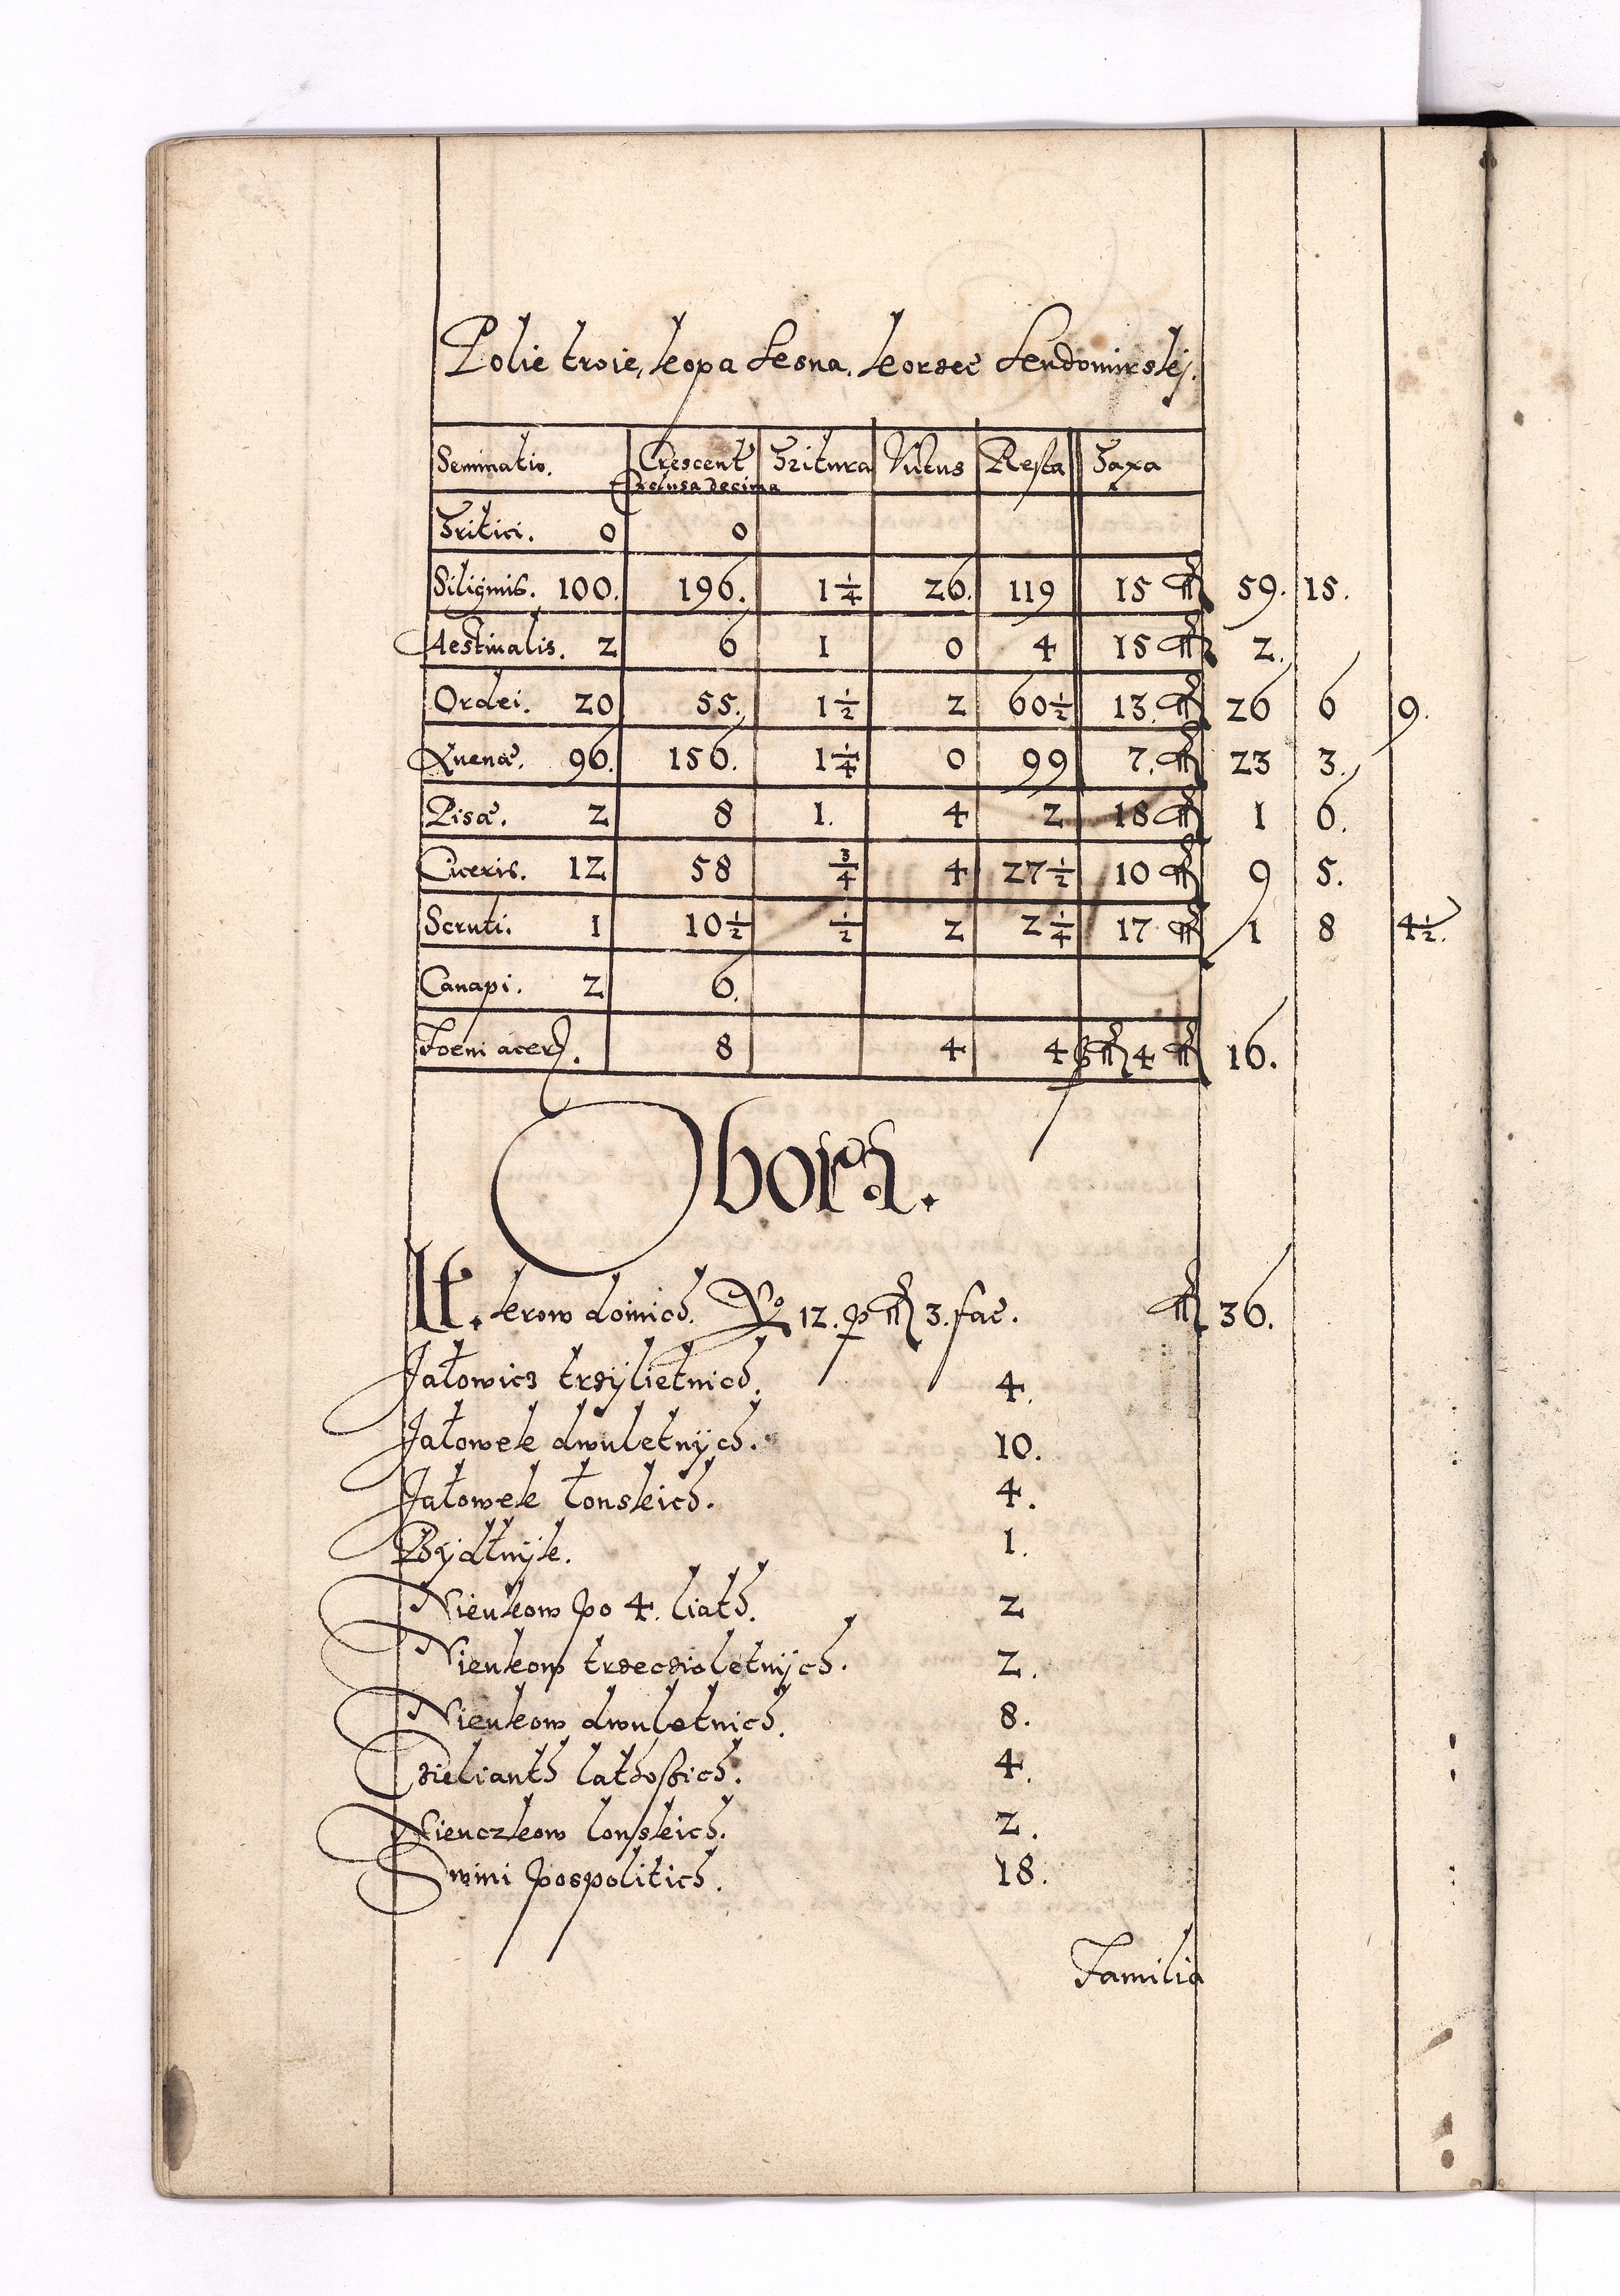 Polie troie, kopa Lesna, korzec Sendomirskj.
Seminatio. Crescent Exclusa decima Tritura Victus Resta Taxa
Tritici. 0 0
Siliginis. 100. 196. 1 1/4 26. 119 15 59. 15.
Aestiualis. 2 6 1 0 4 15 2.
Ordei. 20 55. 1 1/2 2 60 1/2 13. 26 6 9.
Auenæ. 96. 156. 1 1/4 0 99 7. 23 3.
Pisæ. 2 8 1. 4 2 18 1 6.
Ciceris. 12 58 3/4 4 27 1/2 10 9 5.
Scruti. 1 10 1/2 1/2 2 2 1/4 17 1 8 4 1/2.
Canapi. 2 6.
Foeni acer. 8 4 4 4 16.
Obora.
It. krow doinich. No 12. p 3. fac. 36.
Jałowicz trzÿlietnich. 4.
Jałowek dwuletnÿch. 10.
Jałowek łonskich. 4.
Bÿdłnÿk. 1.
Cieukow po 4. liath. 2
Cieukow trzeczioletnÿch. 2.
Cieukow dwuletnich. 8.
Czielianth lathoßich. 4.
Cieuczkow lonskich. 2.
Swini pospolitich. 18.
Familia